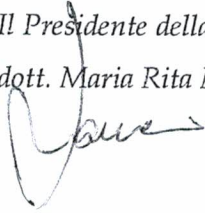 Il Presidente della
dott. Maria Rita